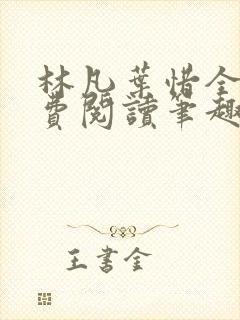 林凡葉惜全
費閱讀筆趣
王書金